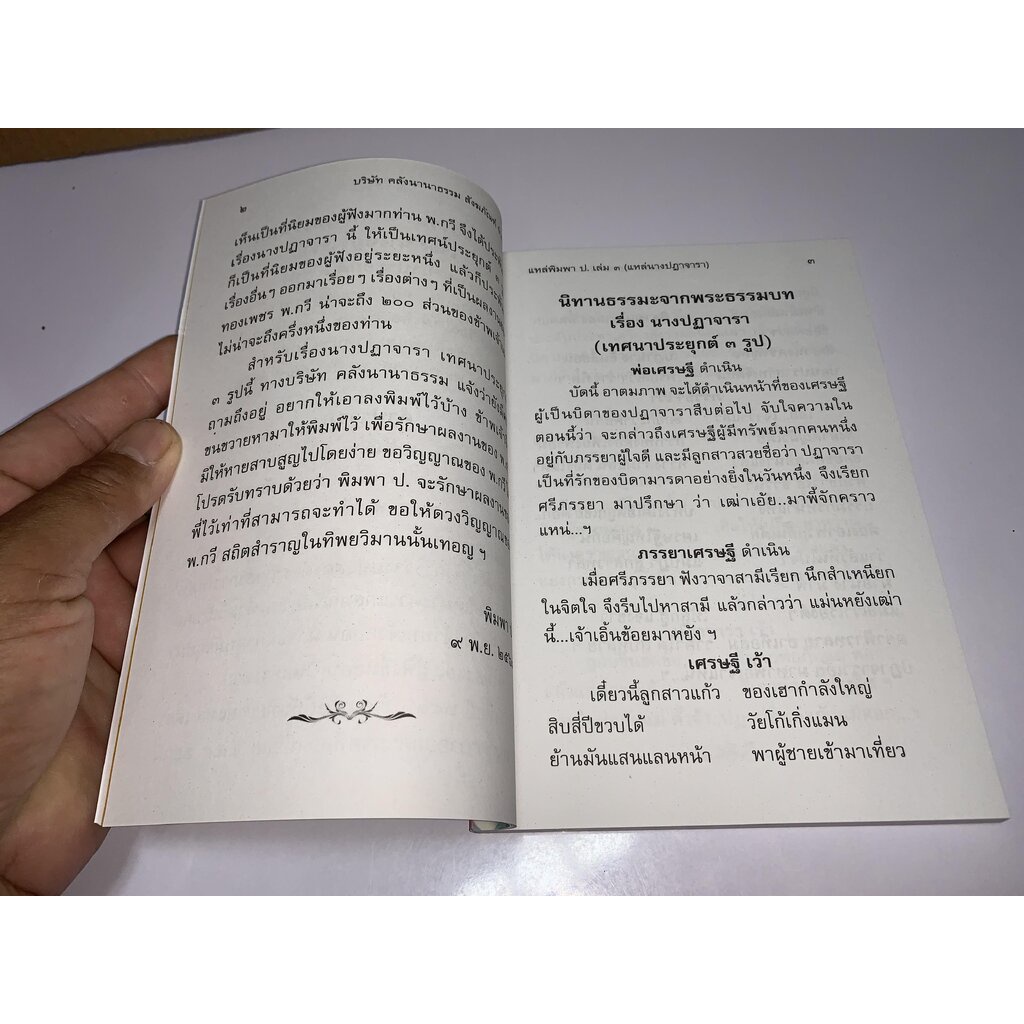 ๒
บริษัท คลังนานาธรรม สังฆภัณฑ์
เห็นเป็นที่นิยมของผู้ฟังมากท่าน พ.กวี จึงได้ประ
เรื่องนางปฏาจารา นี้ ให้เป็นเทศน์ประยุกต์ ๓
ก็เป็นที่นิยมของผู้ฟังอยู่ระยะหนึ่ง แล้วก็ประพั
เรื่องอื่นๆ ออกมาเรื่อยๆ เรื่องต่างๆ ที่เป็นผลงาน
ทองเพชร พ.กวี น่าจะถึง ๒๐๐ ส่วนของข้าพเจ้า
ไม่น่าจะถึงครึ่งหนึ่งของท่าน
สำหรับเรื่องนางปฏาจารา เทศนาประยุก
๓ รูปนี้ ทางบริษัท คลังนานาธรรม แจ้งว่ายังมี
ถามถึงอยู่ อยากให้เอาลงพิมพ์ไว้บ้าง ข้าพเจ้า
ขนขวายหามาให้พิมพ์ไว้ เพื่อรักษาผลงานของ พ.กวี
มิให้หายสาบสูญไปโดยง่าย ขอวิญญาณของ พ.กวี
โปรดรับทราบด้วยว่า พิมพา ป. จะรักษาผลงาน
พี่ไว้เท่าที่สามารถจะทำได้ ขอให้ดวงวิญญาณ
พ.กวี สถิตสำราญในทิพยวิมานนั้นเทอญ ฯ
พิมพา
๙ พ.ย. ๒๕
แหล่พิมพา ป. เล่ม ๓ (แหล่นางปฏาจารา) ๓
นิทานธรรมะจากพระธรรมบท
เรื่อง นางปฏาจารา
(เทศนาประยุกต์ ๓ รูป)
พ่อเศรษฐี ดำเนิน
บัดนี้ อาตมภาพ จะได้ดำเนินหน้าที่ของเศรษฐี
ผู้เป็นบิดาของปฏาจาราสืบต่อไป จับใจความใน
ตอนนี้ว่า จะกล่าวถึงเศรษฐีผู้มีทรัพย์มากคนหนึ่ง
อยู่กับภรรยาผู้ใจดี และมีลูกสาวสวยชื่อว่า ปฏาจารา
เป็นที่รักของบิดามารดาอย่างยิ่งในวันหนึ่ง จึงเรียก
ศรีภรรยา มาปรึกษา ว่า เฒ่าเอ้ย..มาพี้จักคราว
แหน่...ฯ
ภรรยาเศรษฐี ดำเนิน
เมื่อศรีภรรยา ฟังวาจาสามีเรียก นึกสำเหนียก
ในจิตใจ จึงรีบไปหาสามี แล้วกล่าวว่า แม่นหยังเฒ่า
นี้...เจ้าเอิ้นข้อยมาหยัง ฯ
เศรษฐี เว้า
เดี๋ยวนี้ลูกสาวแก้ว ของเฮากำลังใหญ่
สิบสี่ปีขวบได้ วัยโก้เกิ่งแมน
ย้านมันแสนแลนหน้า พาผู้ชายเข้ามาเที่ยว